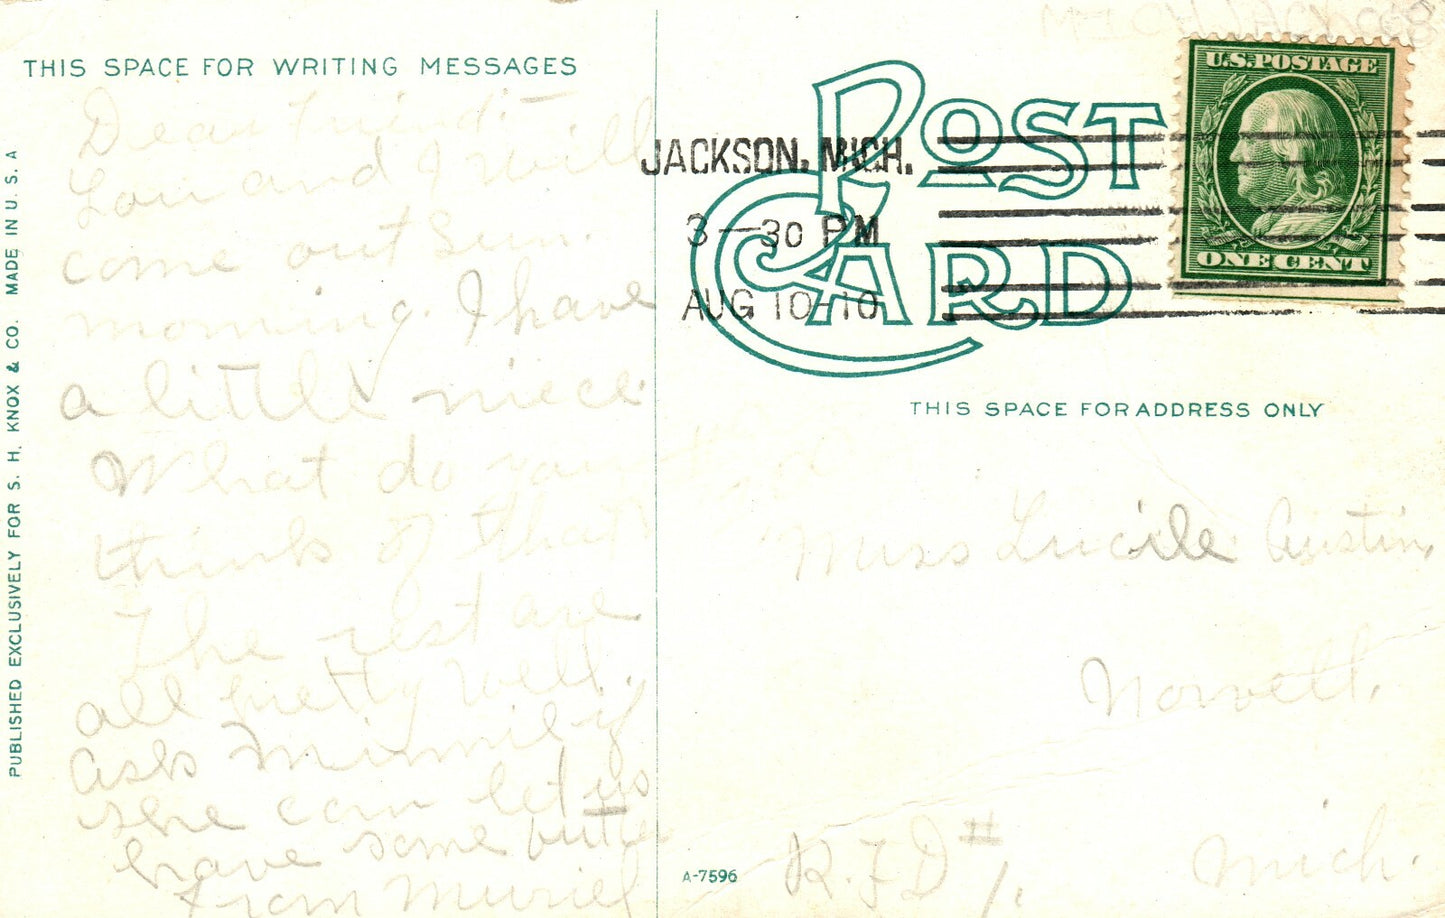 THIS SPACE FOR WRITING MESSAGES
Dear Friend:
Lou and I will
come out Sun.
morning. I have
a little niece.
What do you
think of that
The rest are
all pretty well.
Ask Minnie if
she can let us
have some butter
From Muriel
PUBLISHED EXCLUSIVELY FOR S. H. KNOX & CO. MADE IN U. S. A
POST
CARD
JACKSON, MICH.
3-30 PM
AUG 10-10
U.S. POSTAGE
ONE CENT
THIS SPACE FOR ADDRESS ONLY
Miss Lucile Austin,
Norvell,
R.F.D #1. Mich.
A-7596